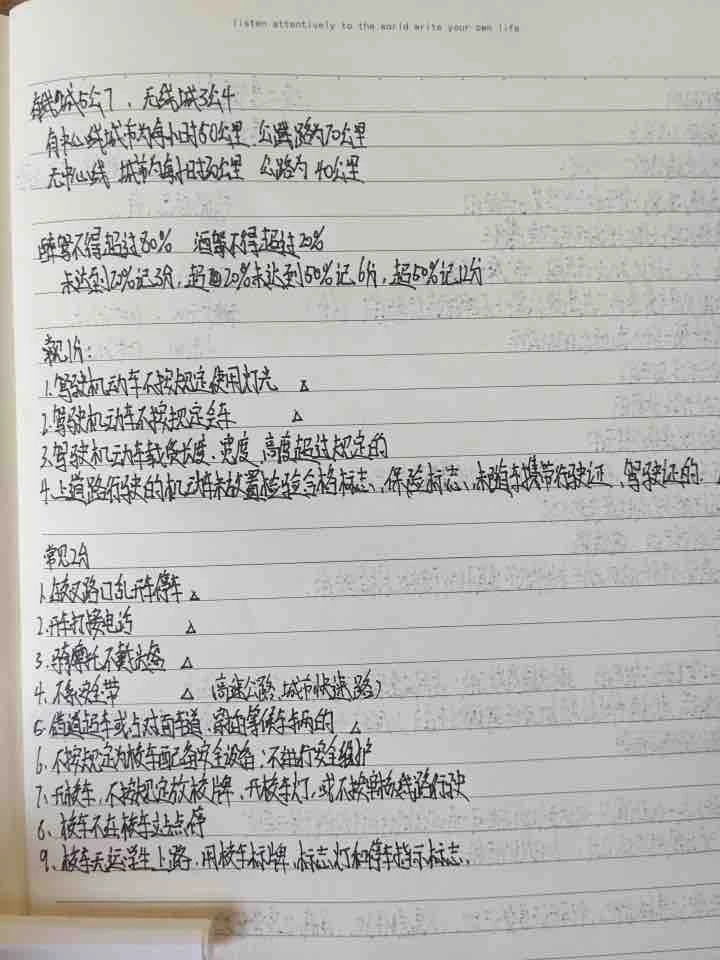 listen attentively to the world write your own life
有线城5公7、无线城3公4
有中心线城市为每小时50公里 公路为70公里
无中心线 城市为每小时30公里 公路为40公里
醉驾不得超过80% 酒驾不得超过20%
未达到20%记3分，超过20%未达到50%记6分，超50%记12分
常见1分：
1.驾驶机动车不按规定使用灯光 △
2.驾驶机动车不按规定会车 △
3.驾驶机动车载货长度、宽度、高度超过规定的
4.上道路行驶的机动车未放置检验合格标志、保险标志、未随车携带行驶证、驾驶证的.
常见2分
1.在交叉路口乱开车停车 △
2.开车打接电话 △
3.骑摩托不戴头盔 △
4.不系安全带 △ （高速公路、城市快速路）
5.借道超车或占对面车道、穿插等候车辆的 △
6、不按规定为校车配备安全设备；不进行安全维护
7、开校车，不按规定放校牌、开校车灯，或不按审核线路行驶
8、校车不在校车站点停
9、校车无运学生上路，用校车标牌、标志灯和停车指示标志.